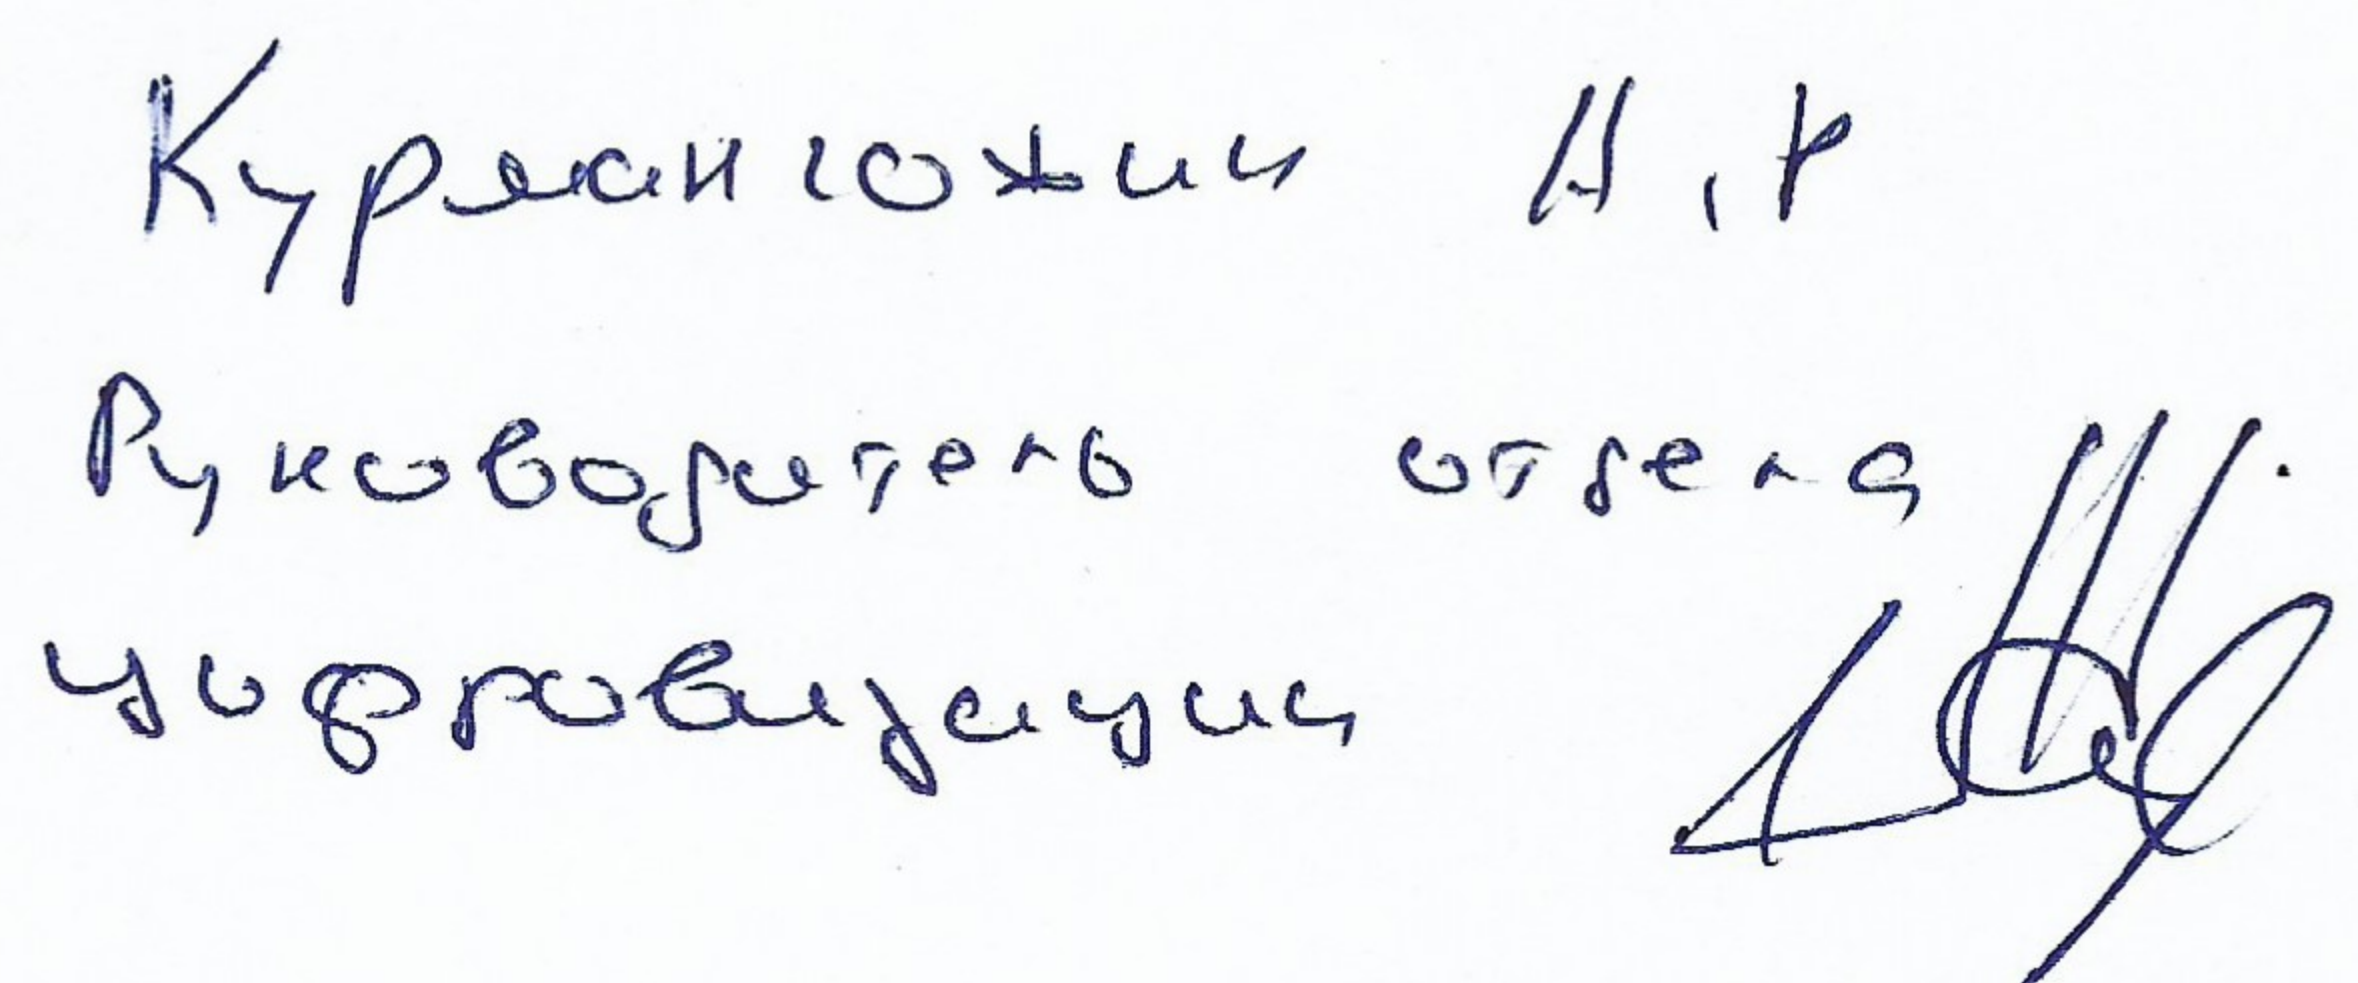 Курмангожин А.Р
Руководитель отдела
цифровизации